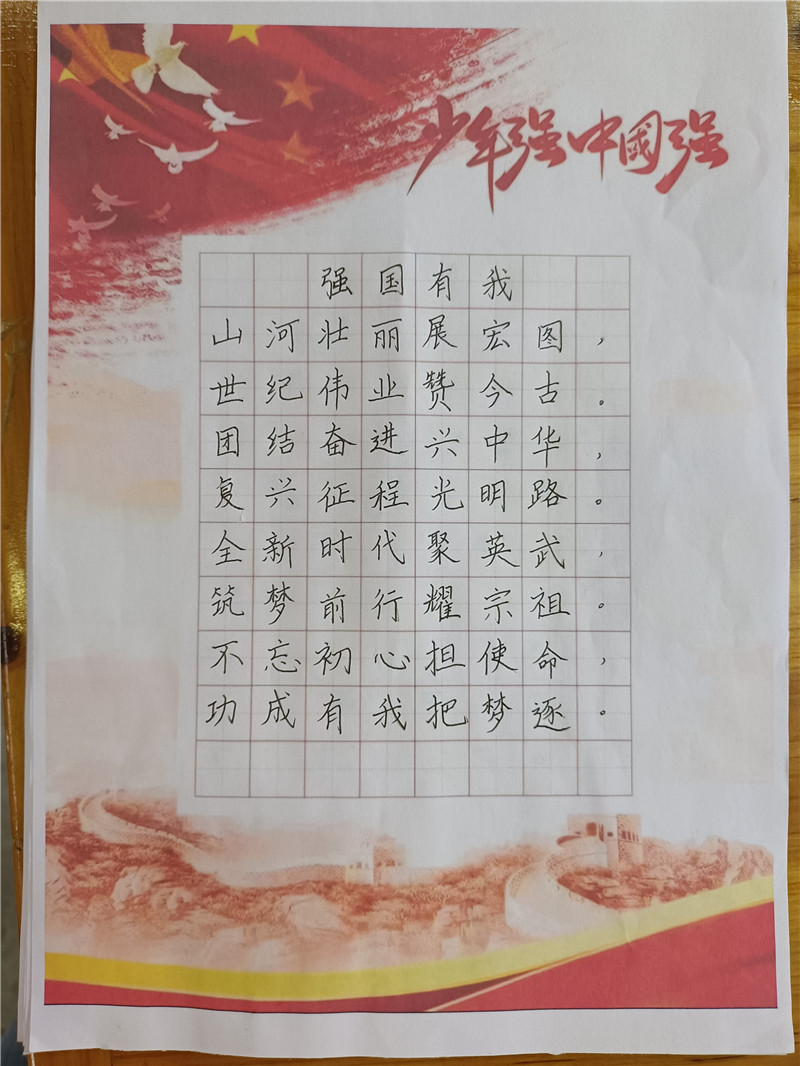 少年强中國强
强国有我
山河壮丽展宏图，
世纪伟业赞今古。
团结奋进兴中华，
复兴征程光明路。
全新时代聚英武，
筑梦前行耀宗祖。
不忘初心担使命，
功成有我把梦逐。